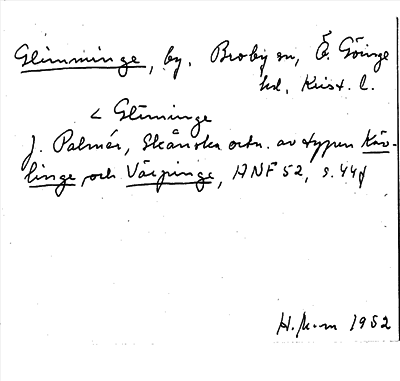 Glimminge, by. Broby sn, Ö. Göinge
hd, Krist. l.
< Glīminge
J. Palmér, Skånska ortn. av typen Käv-
linge och Värpinge, ANF 52, s. 44f
1952